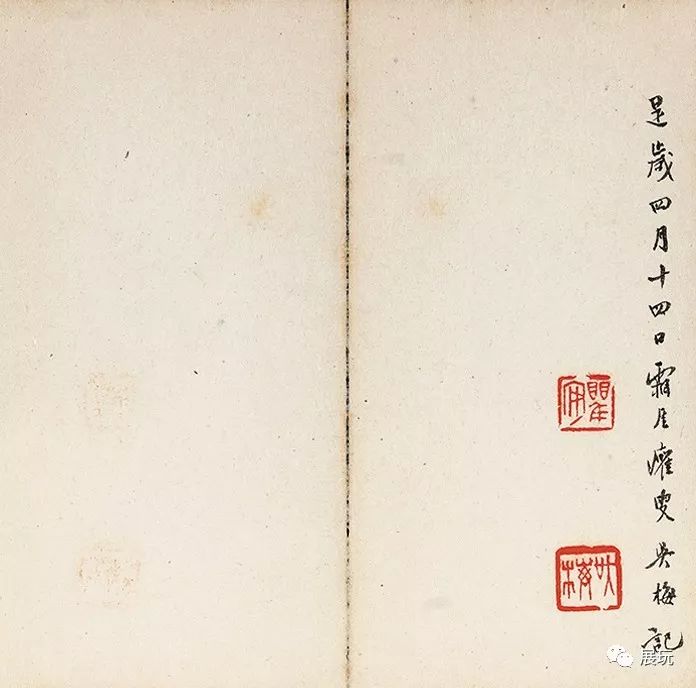 是歲四月十四日霜厓癯叟吳梅記
瞿安
吳梅
展玩